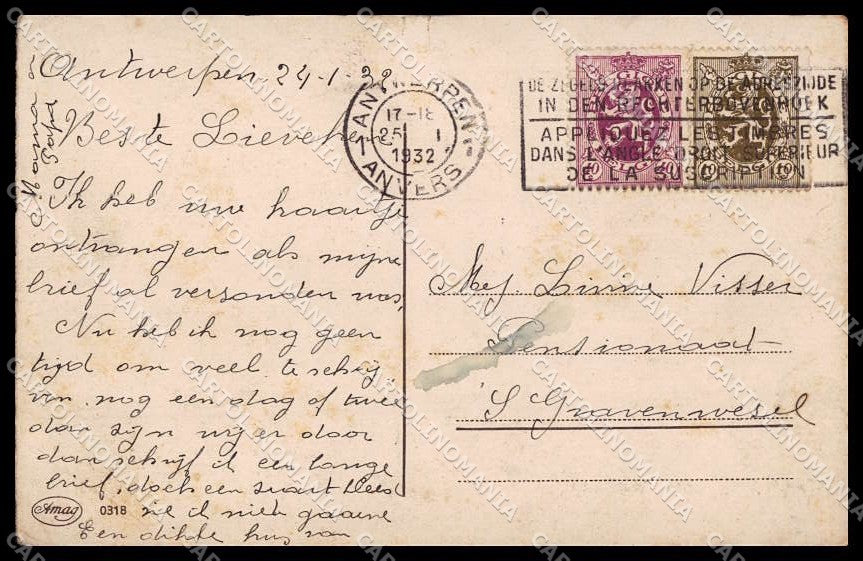 Antwerpen 24-1-32
Beste Lieveke
Ik heb uw kaartje
ontvangen als mijne
brief al verzonden was,
Nu heb ik nog geen
tijd om veel te schrij
ven. nog een dag of twee
dan zijn wij er door
dan schrijf ik een lange
brief, doch een zwart kleed
zie ik niet gaarne
Een dikke kus van
ANTWERPEN 1
17-18
25 I
1932
1 ANVERS
DE ZEGELS PLAKKEN OP DE ADRESZIJDE
IN DEN RECHTERBOVENHOEK
APPLIQUEZ LES TIMBRES
DANS L'ANGLE DROIT SUPERIEUR
DE LA SUSCRIPTION
40 40
Mej. Visser
Pensionaat
'S Gravenwesel
Amag 0318
CARTOLINOMANIA